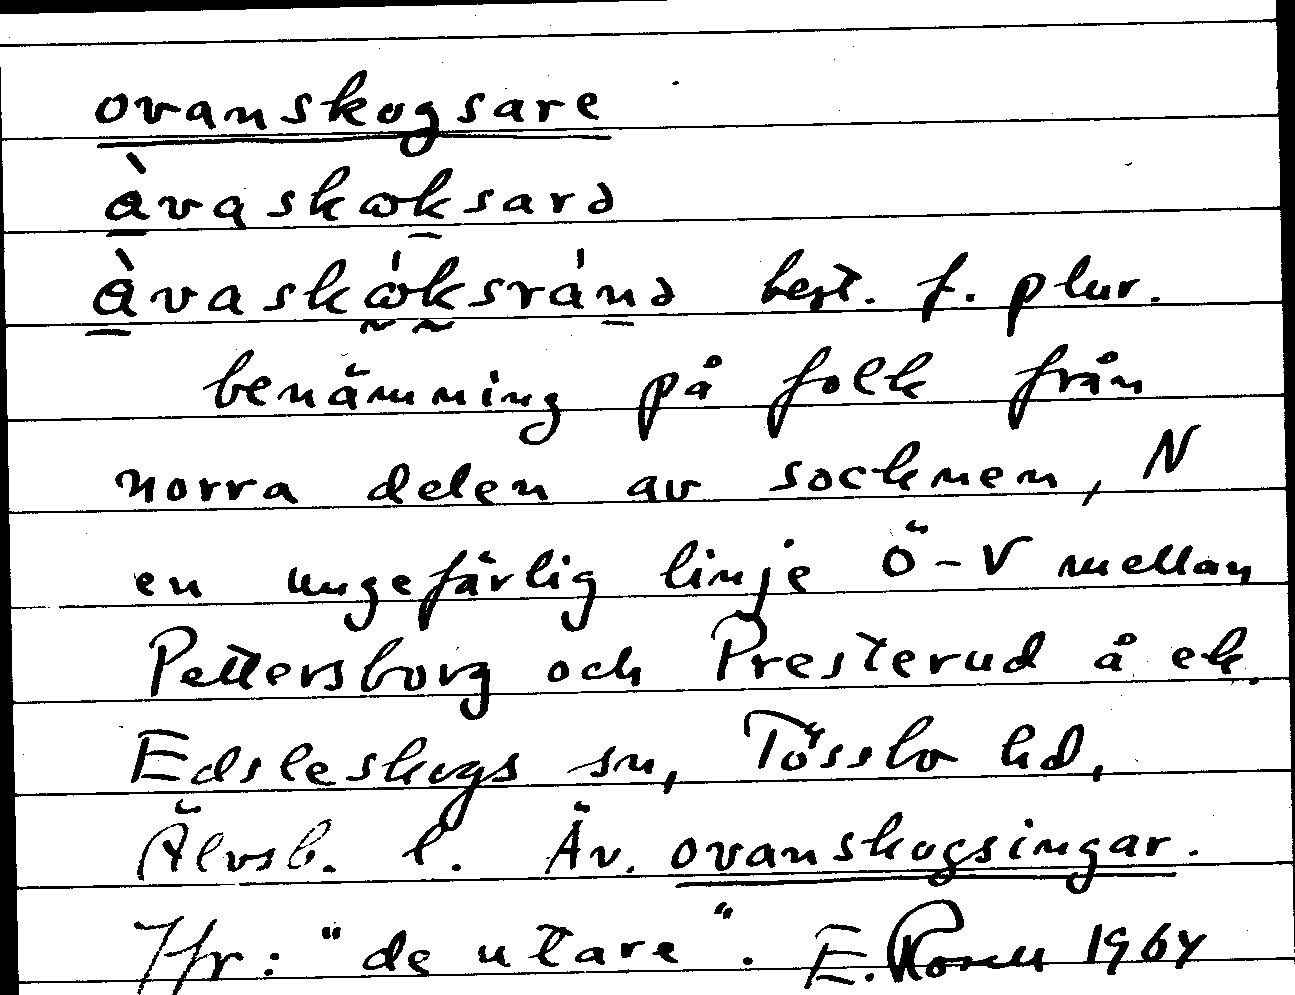 ovanskogsare
àvaskωksarə
àvaskωksránə best. f. plur.
benämning på folk från
norra delen av socknen, N
en ungefärlig linje Ö-V mellan
Pettersborg och Presterud å ek.
Edsleskogs sn, Tössbo hd,
Älvsb. l. Äv. ovanskogsingar.
Jfr: "de utare". E. Rosell 1964